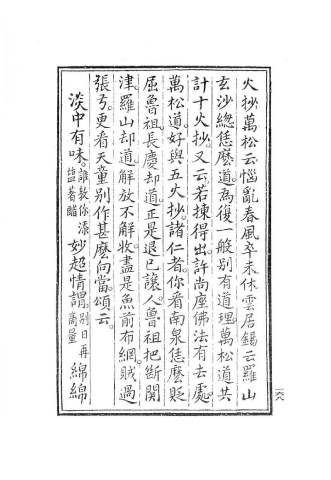 火抄。萬松云。惱亂春風卒未休。雲居錫云。羅山
玄沙總恁麼道。為復一般。別有道理。萬松道。共
計十火抄。又云。若揀得出。許尚座佛法有去處。
萬松道。好與五火抄。諸仁者。你看南泉恁麼貶
屈魯祖。長慶却道。正是退己讓人。魯祖把斷關
津。羅山却道。解放不解收。盡是魚前布網。賊過
張弓。更看天童別作甚麼向當。頌云。
淡中有味。誰教你添鹽著醋 妙超情謂。別日再商量 綿綿
一六八